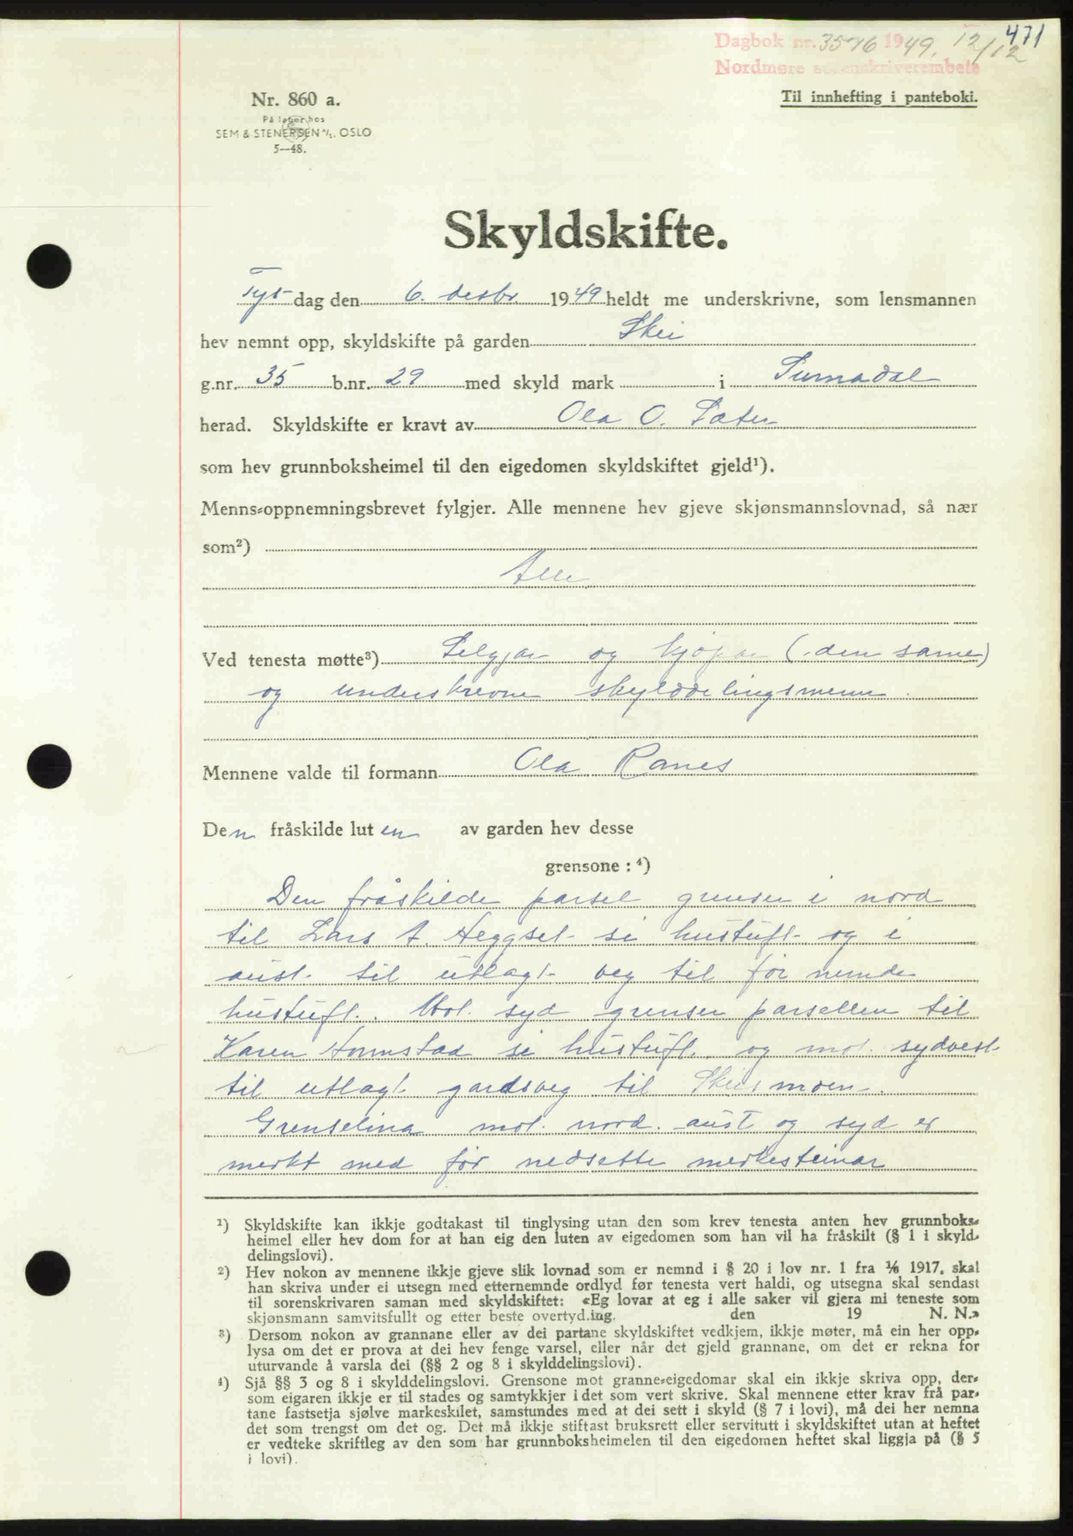 471
Dagbok nr. 3576 1949. 12/12
Nordmøre sorenskriverembete
Til innhefting i panteboki.
Nr. 860 a.
På lager hos
SEM & STENERSEN A/S. OSLO
5—48.
Skyldskifte.
Tysdag den 6. desbr 1949 heldt me underskrivne, som lensmannen
hev nemnt opp, skyldskifte på garden Skei
g.nr. 35 b.nr. 29 med skyld mark i Surnadal
herad. Skyldskifte er kravt av Ola O. Sæter
som hev grunnboksheimel til den eigedomen skyldskiftet gjeld¹).
Menns-oppnemningsbrevet fylgjer. Alle mennene hev gjeve skjønsmannslovnad, så nær
som²)
Alle
Ved tenesta møtte³) Selgjar og kjøpar (den same)
og underskrevne skylddelingsmenn.
Mennene valde til formann Ola Ranes
Den fråskilde luten av garden hev desse
grensone : ⁴)
Den fråskilde parsel grenser i nord
til Lars A. Heggset si hustuft og i
aust til utlagt veg til før nemnde
hustuft. Mot syd grenser parsellen til
Karen Honnstad si hustuft og mot sydvest
til utlagt gardsveg til Skeismoen.
Grenselina mot nord. aust og syd er
merkt med før nedsette merkesteinar
¹) Skyldskifte kan ikkje godtakast til tinglysing utan den som krev tenesta anten hev grunnboks-
heimel eller hev dom for at han eig den luten av eigedomen som han vil ha fråskilt (§ 1 i skyld-
delingslovi).
²) Hev nokon av mennene ikkje gjeve slik lovnad som er nemnd i § 20 i lov nr. 1 fra 1/6 1917, skal
han skriva under ei utsegn med etternemnde ordlyd før tenesta vert haldi, og utsegna skal sendast
til sorenskrivaren saman med skyldskiftet: «Eg lovar at eg i alle saker vil gjera mi teneste som
skjønsmann samvitsfullt og etter beste overtyding. den 19 N. N.»
³) Dersom nokon av grannane eller av dei partane skyldskiftet vedkjem, ikkje møter, må ein her opp-
lysa om det er prova at dei hev fenge varsel, eller når det gjeld grannane, om det er rekna for
uturvande å varsla dei (§§ 2 og 8 i skylddelingslovi).
⁴) Sjå §§ 3 og 8 i skylddelingslovi. Grensone mot granne-eigedomar skal ein ikkje skriva opp, der-
som eigaren ikkje er til stades og samtykkjer i det som vert skrive. Skal mennene etter krav frå par-
tane fastsetja sjølve markeskilet, samstundes med at dei sett i skyld (§ 7 i lovi), må dei her nemna
det som trengst om det og. Det må ikkje stiftast bruksrett eller servitutt i skyldskiftet utan at heftet
er vedteke skriftleg av den som har grunnboksheimelen til den eigedomen heftet skal liggja på (§ 5
i lovi).